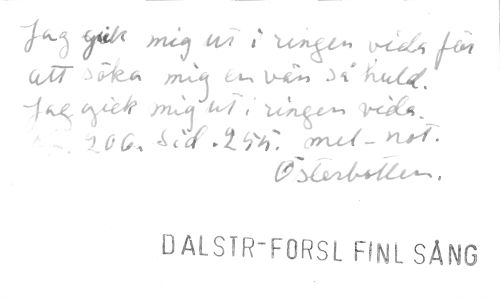 Jag gick mig ut i ringen vida för
att söka mig en vän så huld.
Jag gick mig ut i ringen vida.
206. Sid. 255. mel-not.
Österbotten.
DALSTR-FORSL FINL SÅNG